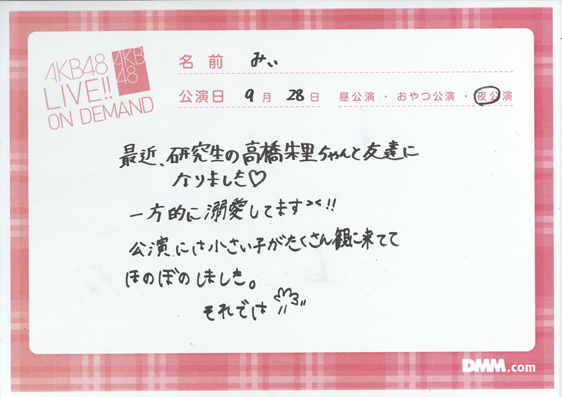 AKB48
LIVE!!
ON DEMAND
AKB
48
名前 みぃ
公演日 9月 28日 昼公演・おやつ公演・夜公演
最近、研究生の高橋朱里ちゃんと友達に
なりました♡
一方的に溺愛してます><!!
公演には小さい子がたくさん観に来てて
ほのぼのしました。
それでは
DMM.com